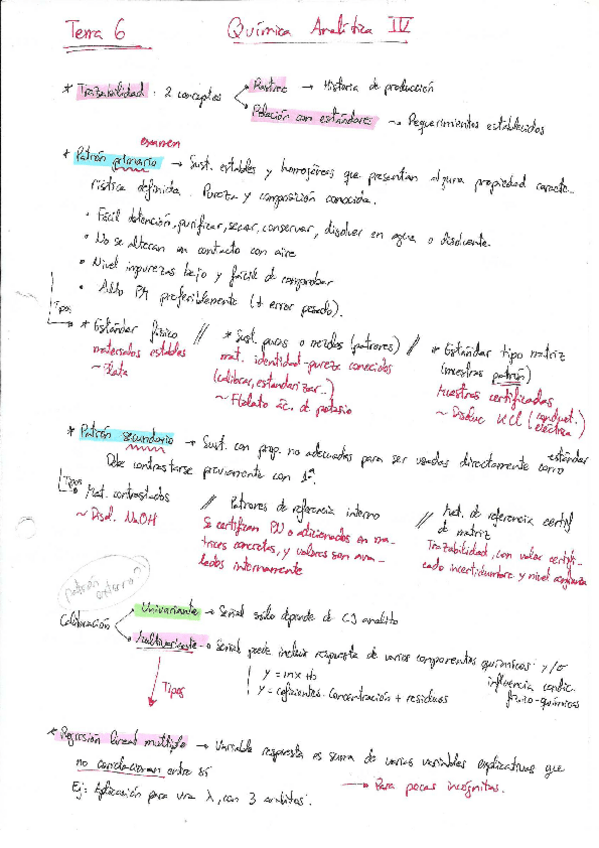 Tema 6 Química Analítica IV
* Trazabilidad: 2 conceptos
Rastreo → Historia de producción
Relación con estándares → Requerimientos establecidos
examen
* Patrón primario → Sust. estables y homogéneas que presentan alguna propiedad caracte-
rística definida. Pureza y composición conocida.
• Fácil obtención, purificar, secar, conservar, disolver en agua o disolvente.
• No se alteran en contacto con aire
• Nivel impurezas bajo y fácil de comprobar
• Alto PM preferiblemente (↓ error pesada).
Tipos
* Estándar físico // * Sust. puras o mezclas (patrones) // * Estándar tipo matriz
materiales estables mat. identidad-pureza conocidas (muestras patrón)
~ Plata (calibrar, estandarizar..) Muestras certificadas
~ Ftalato ác. de potasio ~ Disoluc KCl (conduct. eléctrica)
* Patrón secundario → Sust. con prop. no adecuadas para ser usadas directamente como estándar
Debe contrastarse previamente con 1º.
Tipos
Mat. contrastados // Patrones de referencia interno // Mat. de referencia certif
~ Disol. NaOH Se certifican PN o adicionados en ma- de matriz
trices concretas, y valores son ava- Trazabilidad, con valor certifi-
lados internamente cado incertidumbre y nivel confianza
patrón
externo
Calibración
Univariante → Señal solo depende de [] analito
Multivariante → Señal puede incluir respuesta de varios componentes químicos y/o
influencia condic.
físico-químicas
y = mx + b
y = coeficientes · Concentración + residuos
Tipos
* Regresión lineal múltiple → Variable respuesta es suma de varias variables explicativas que
no correlacionan entre sí → Para pocas incógnitas.
Ej: Aplicación para una λ, con 3 analitos.